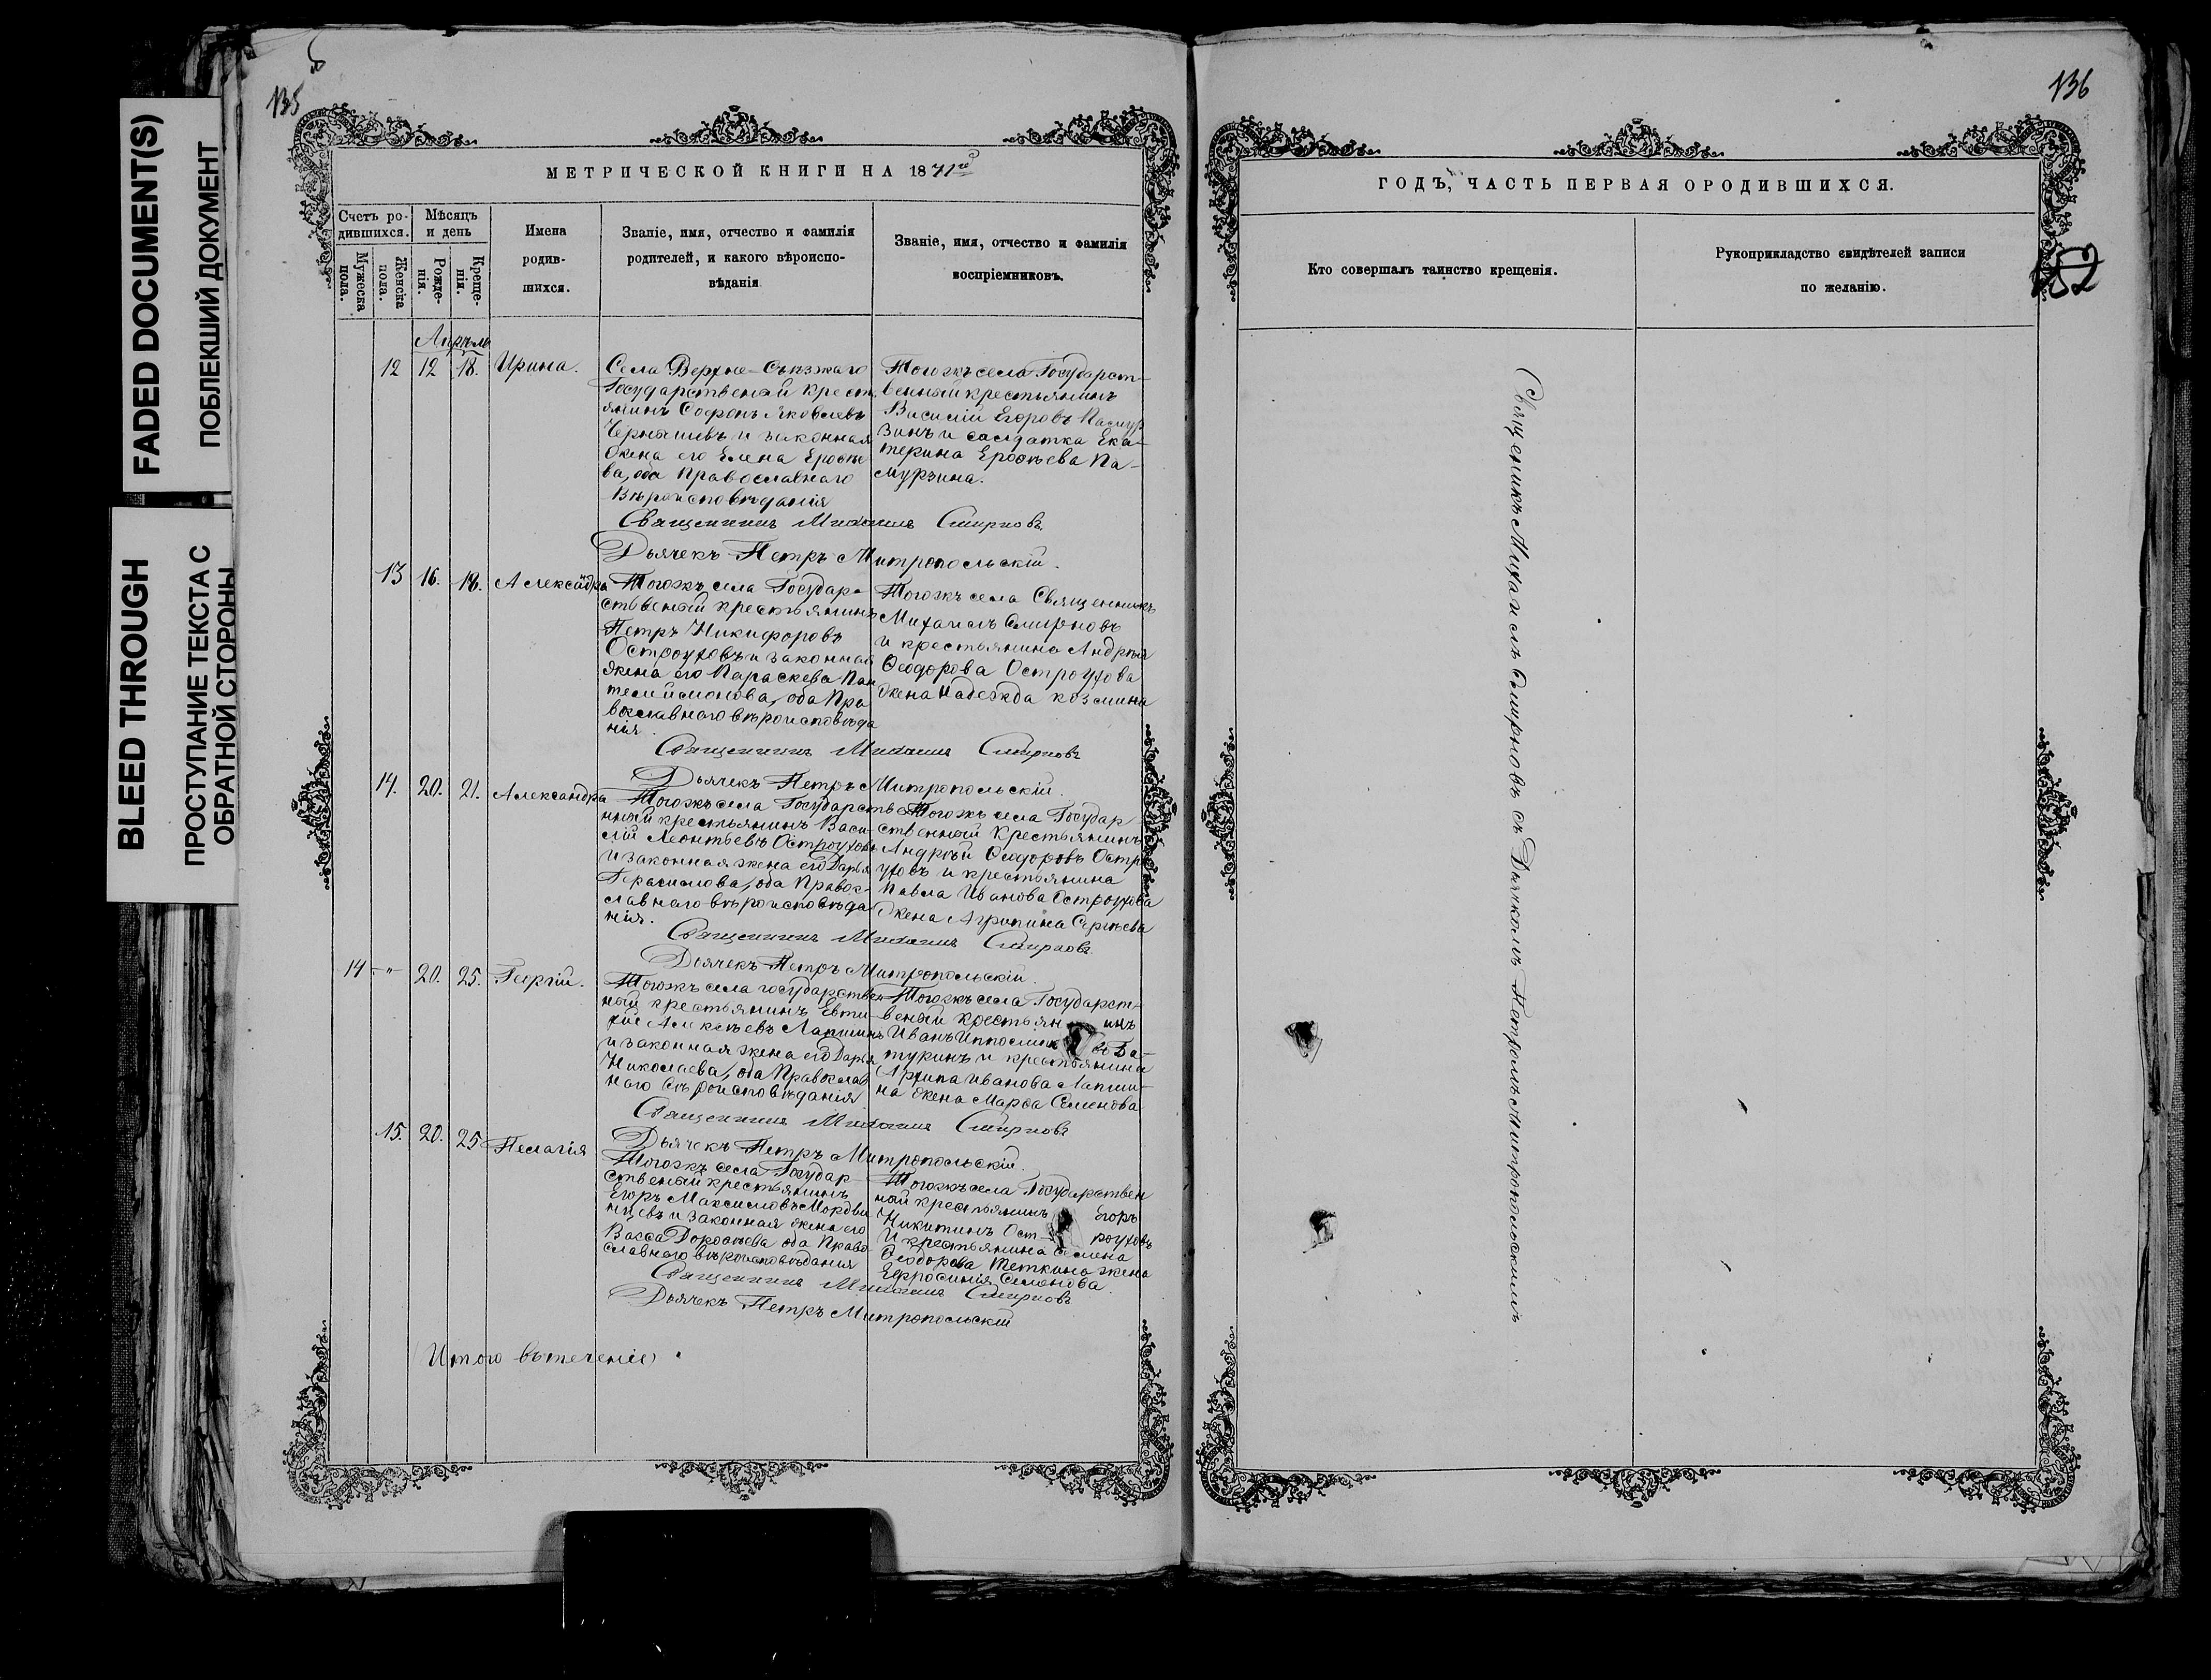 FADED DOCUMENT(S)
ПОБЛЕКШИЙ ДОКУМЕНТ
BLEED THROUGH
ПРОСТУПАНИЕ ТЕКСТА С
ОБРАТНОЙ СТОРОНЫ
135
МЕТРИЧЕСКОЙ КНИГИ НА 1871го
Счетъ ро-
дившихся.
Мѣсяцъ
и день
Мужеска
пола.
Женска
пола.
Рожде-
нія.
Креще-
нія.
Имена
родив-
шихся.
Званіе, имя, отчество и фамилія
родителей, и какого вѣроиспо-
вѣданія
Званіе, имя, отчество и фамилія
воспріемниковъ.
Апрѣль
12 12 18. Ирина.
Села Верхне-Съезжаго
Государственый крест
янинъ Софонъ Яковлевъ
и законная
жена его Елена Ерофѣе
ва, оба Православнаго
Вѣроисповѣданія
Тогожъ села Государст-
венный крестьянинъ
Василій Егоровъ
и салдатка Ека-
терина Ерофѣева Па-
мурзина.
Священникъ Михаилъ Смирновъ
Дьячекъ Петръ Митропольскій.
13 16. 18. Александра
Тогожъ села Государ-
ственый крестьянинъ
Петръ Никифоровъ
Остроуховъ и законная
жена его Параскева Пан
телиймонова, оба Пра
вославнаго вѣроисповѣда
нія.
Тогожъ села Священникъ
Михаилъ Смирновъ
и крестьянина Андрѣя
Ѳеодорова Остроухова
жена Надежда Козмина
Священникъ Михаилъ Смирновъ
Дьячекъ Петръ Митропольскій.
14. 20. 21. Александра
Тогожъ села Государстве
нный крестьянинъ Васи
лій Леонтьевъ Остроуховъ
и законная жена его Дарья
Герасимова, оба Правос-
лавнаго вѣроисповѣда
нія.
Тогожъ села Государ
ственный Крестьянинъ
Андрѣй Ѳеодоровъ Остро
уховъ и крестьянина
Павла Иванова Остроухова
жена Агрипина Сергѣева
Священникъ Михаилъ Смирновъ
Дьячекъ Петръ Митропольскій.
14 -"- 20. 25. Георгій.
Тогожъ села государствен
ный крестьянинъ Евти
хій Алексѣевъ Лапшинъ
и законная жена его Дарья
Николаева, оба Православ
наго вѣроисповѣданія
Тогожъ села Государст-
веный крестьянинъ
Иванъ
и крестьянина
Архипа Иванова Лапши-
на жена Марфа Семенова
Священникъ Михаилъ Смирновъ
Дьячекъ Петръ Митропольскій.
15. 20. 25 Пелагія
Тогожъ села Государ-
ственый крестьянинъ
Егоръ Максимовъ Мордви
нцевъ и законная жена его
Васса Дорофѣева оба Право
славнаго вѣроисповѣданія
Тогожъ села Государствен
ный крестьянинъ Егоръ
Никитинъ Остроуховъ
и крестьянина Семена
Ѳеодорова Теткина жена
Евфросинія Семенова.
Священникъ Михаилъ Смирновъ
Дьячекъ Петръ Митропольскій
Итого втеченіе
136
ГОДЪ, ЧАСТЬ ПЕРВАЯ О РОДИВШИХСЯ.
Кто совершалъ таинство крещенія.
Рукоприкладство свидѣтелей записи
по желанію.
Священикъ Михаилъ Смирновъ съ Дьячкомъ Петромъ Митропольскимъ